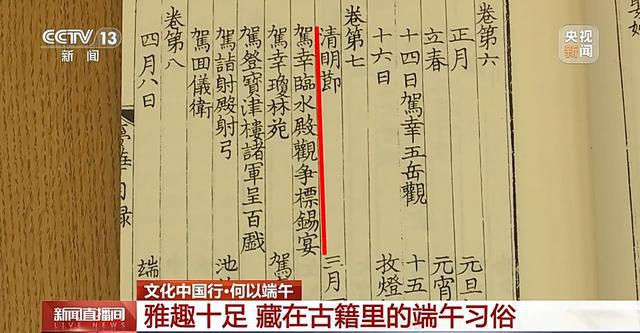 CCTV 13
新闻
央视新闻
卷第六
正月 元旦
立春 元宵
十四日駕幸五岳觀 十五
十六日 收燈
卷第七
清明節 三月一
駕幸臨水殿觀争標錫宴
駕幸瓊林苑 駕
駕登寶津樓諸軍呈百戲
駕詣射殿射弓 池
駕囬儀衛
卷第八
四月八日 端
文化中国行·何以端午
新闻直播间
LIVE NEWS
雅趣十足 藏在古籍里的端午习俗